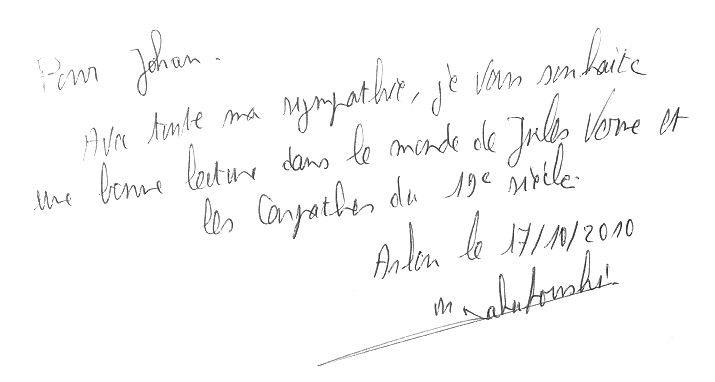 Pour Johan.
Avec toute ma sympathie, je vous souhaite
une bonne lecture dans le monde de Jules Verne et
les Carpathes du 19e siècle.
Arlon le 17/10/2010
M